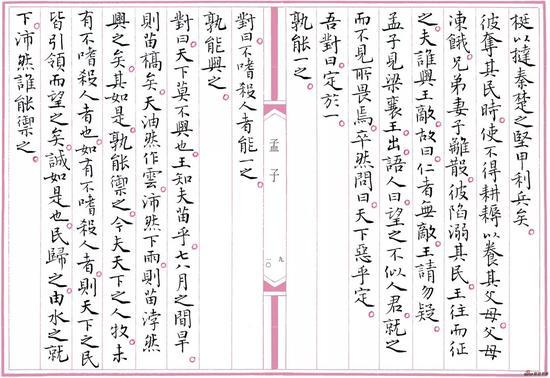 梃以撻秦楚之堅甲利兵矣
彼奪其民時使不得耕耨以養其父母父母
凍餓兄弟妻子離散彼陷溺其民王往而征
之夫誰與王敵故曰仁者無敵王請勿疑
孟子見梁襄王出語人曰望之不似人君就之
而不見所畏焉卒然問曰天下惡乎定
吾對曰定於一
孰能一之
孟子
九
一〇
對曰不嗜殺人者能一之
孰能與之
對曰天下莫不與也王知夫苗乎七八月之間旱
則苗槁矣天油然作雲沛然下雨則苗浡然
興之矣其如是孰能禦之今夫天下之人牧未
有不嗜殺人者也如有不嗜殺人者則天下之民
皆引領而望之矣誠如是也民歸之由水之就
下沛然誰能禦之